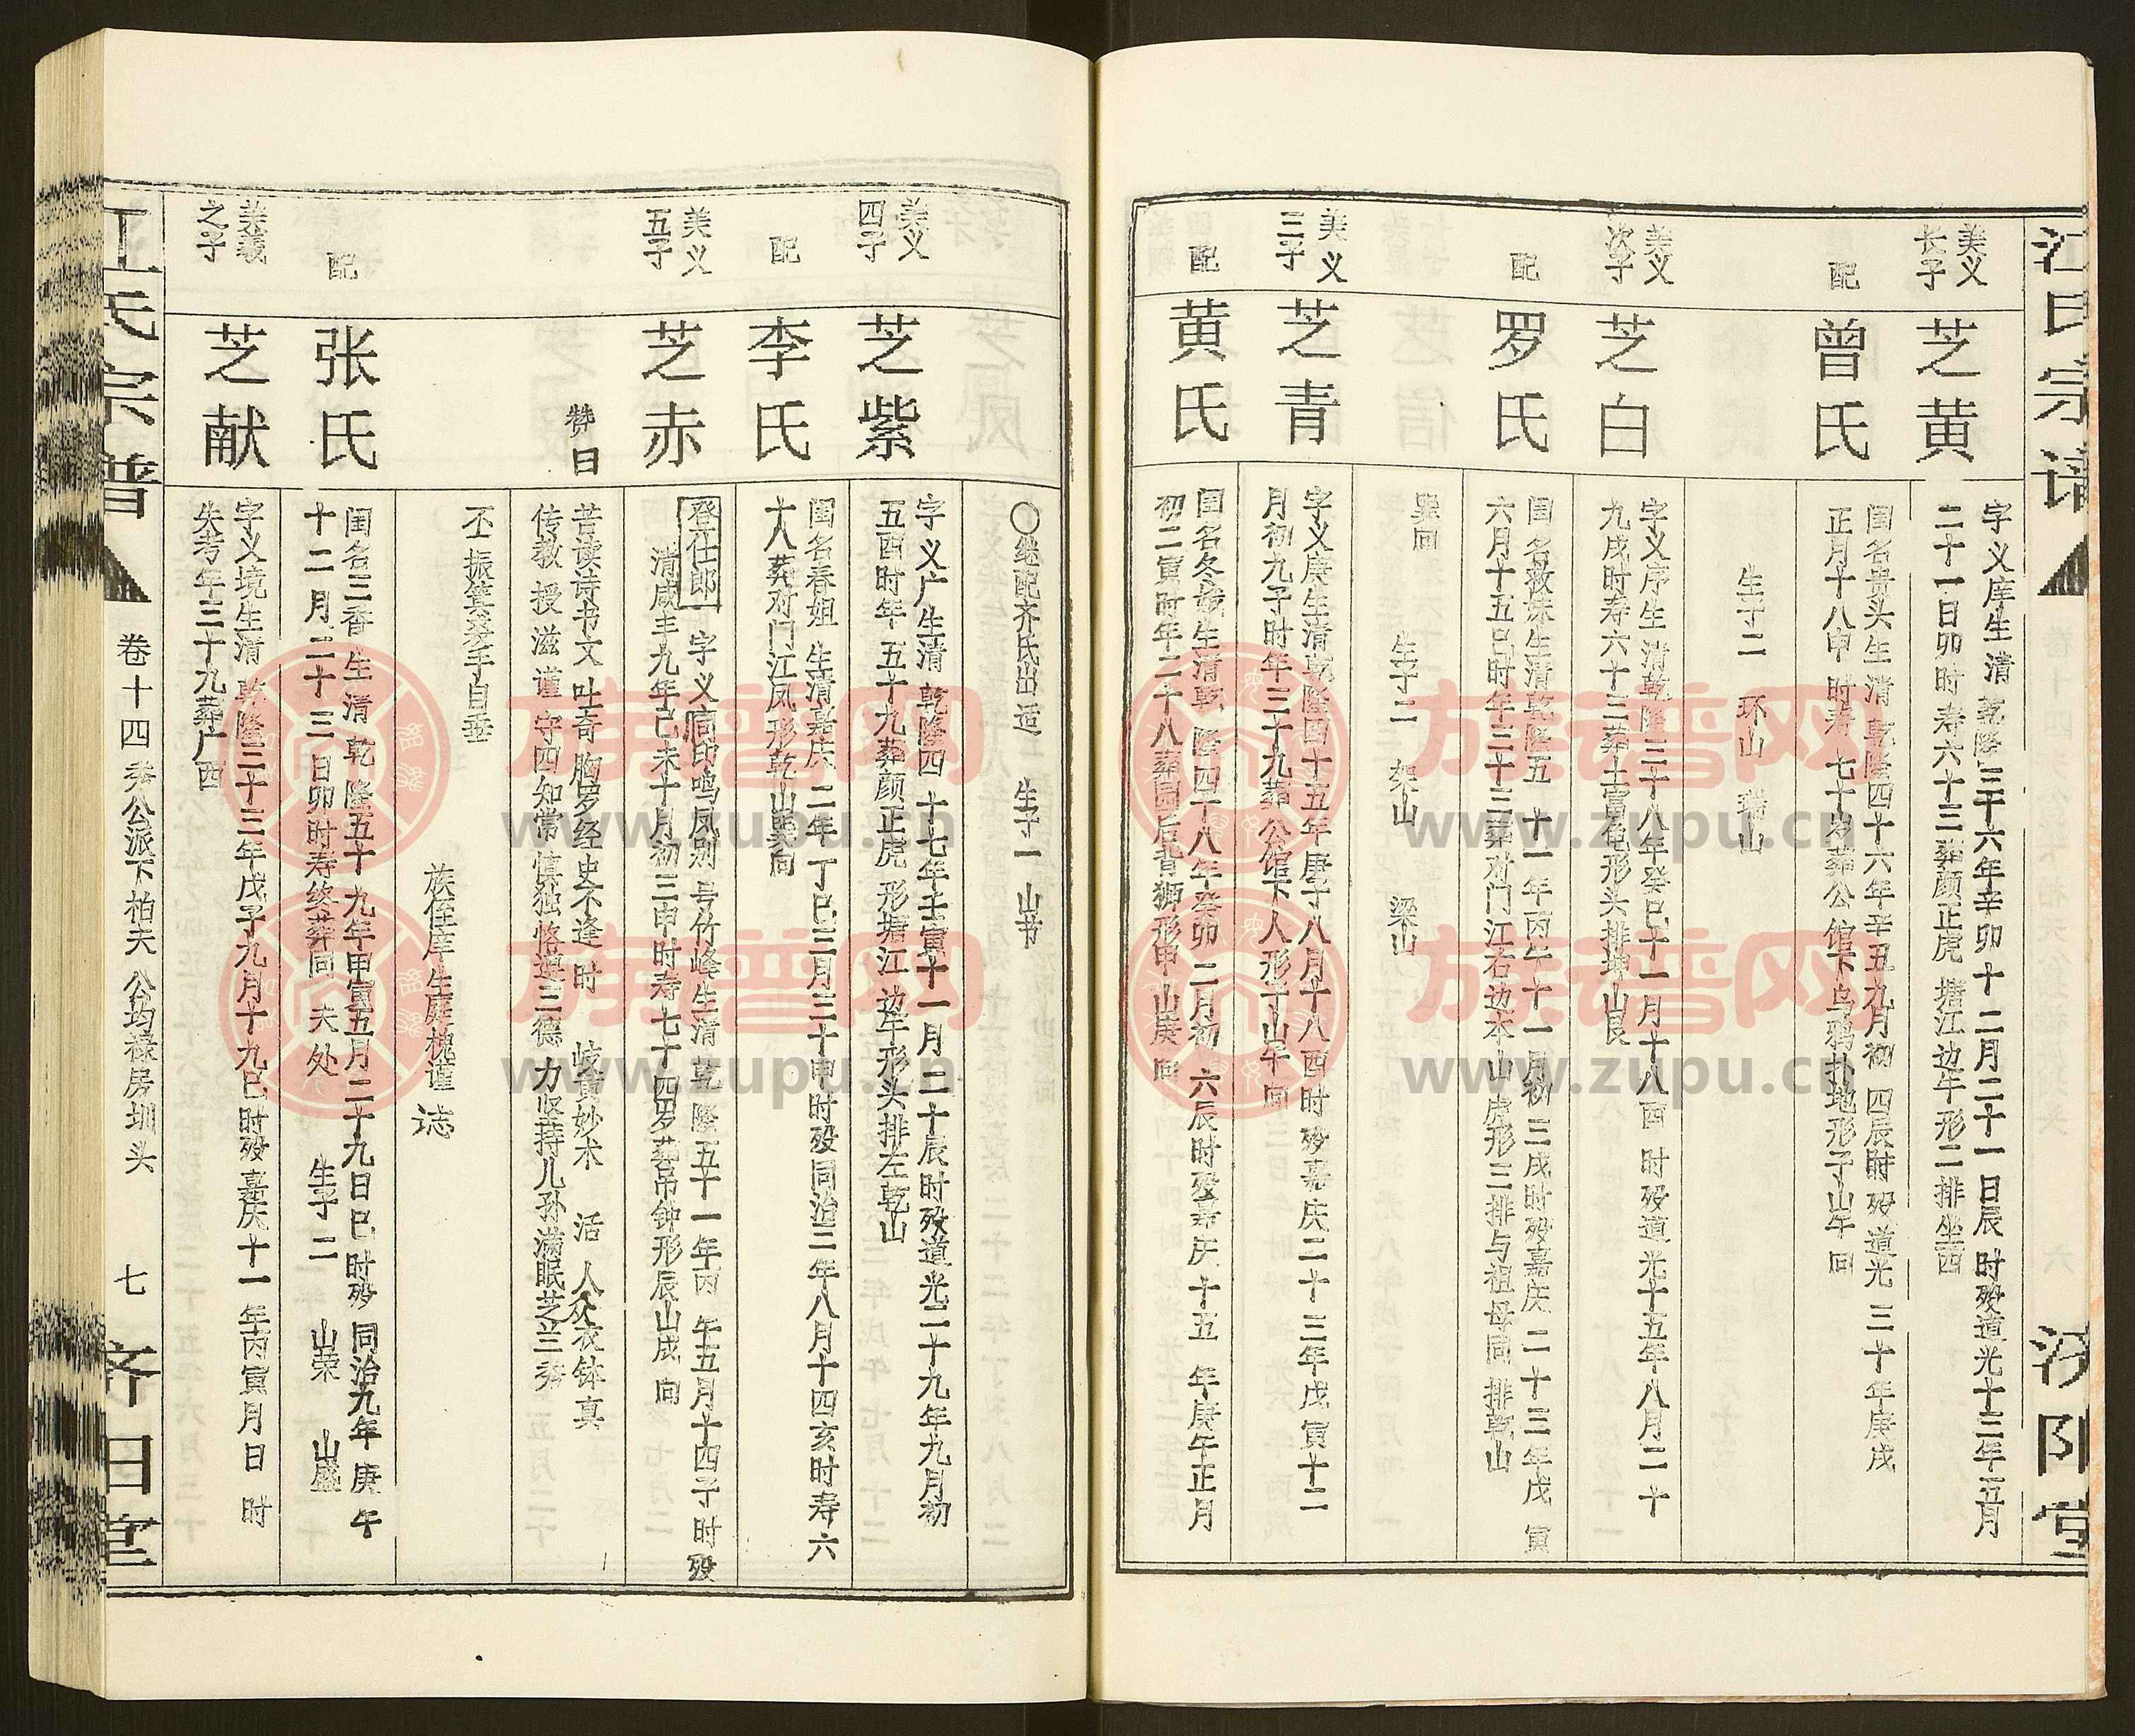 江氏宗谱
济阳堂
美义长子
芝黄
字义庠生清乾隆三十六年辛卯十二月二十一日辰时殁道光十三年五月
二十一日卯时寿六十三葬颜正虎塘江边牛形二排坐西
配
曾氏
闺名贵头生清乾隆四十六年辛丑九月初四辰时殁道光三十年庚戌
正月十八申时寿七十岁葬公馆下乌鸦扑地形子山午向
生子二 环山 瑞山
美义次子
芝白
字义序生清乾隆三十八年癸巳十一月十八酉时殁道光十五年八月二十
九戌时寿六十三葬土富龟形头排坤山艮
配
罗氏
闺名救妹生清乾隆五十一年丙午十一月初三戌时殁嘉庆二十三年戊寅
六月十五巳时年三十三葬对门江右边本山虎形三排与祖母同排乾山
巽向
生子二 架山 梁山
美义三子
芝青
字义庚生清乾隆四十五年庚子八月十八酉时殁嘉庆二十三年戊寅十二
月初九子时年三十九葬公馆下人形子山午向
配
黄氏
闺名冬娥生清乾隆四十八年癸卯二月初六辰时殁嘉庆十五年庚午正月
初二寅时年二十八葬园后背狮形申山庚向
〇继配齐氏出适 生子一 山节
美义四子
芝紫
字义广生清乾隆四十七年壬寅十一月二十辰时殁道光二十九年九月初
五酉时年五十九葬颜正虎形塘江边牛形头排左乾山
配
李氏
闺名春姐生清嘉庆二年丁巳三月三十申时殁同治二年八月十四亥时寿六
十八葬对门江凤形乾山巽向
美义五子
芝赤
登仕郎 字义庙印鸣凤别号竹峰生清乾隆五十一年丙午五月十四子时殁
清咸丰九年己未十月初三申时寿七十四岁葬吊钟形辰山戌向
赞曰
苦读诗书文吐奇胸罗经史不逢时 岐黄妙术活人众衣钵真
传教授滋谨守四知常慎独恪遵三德力坚持儿孙满眼芝兰秀
丕振箕裘手自垂
族侄庠生庭槐谨志
配
张氏
闺名三香生清乾隆五十九年甲寅五月二十九日巳时殁同治九年庚午
十二月二十三日卯时寿终葬同夫处 生子二 山荣 山盛
美义之子
芝献
字义境生清乾隆三十三年戊子九月十九巳时殁嘉庆十一年丙寅月日时
失考年三十九葬广西
江氏宗谱
卷十四秀公派下柏夫公均禄房圳头
七
济阳堂
族谱网
www.zupu.cn
族谱网
www.zupu.cn
族谱网
www.zupu.cn
族谱网
www.zupu.cn